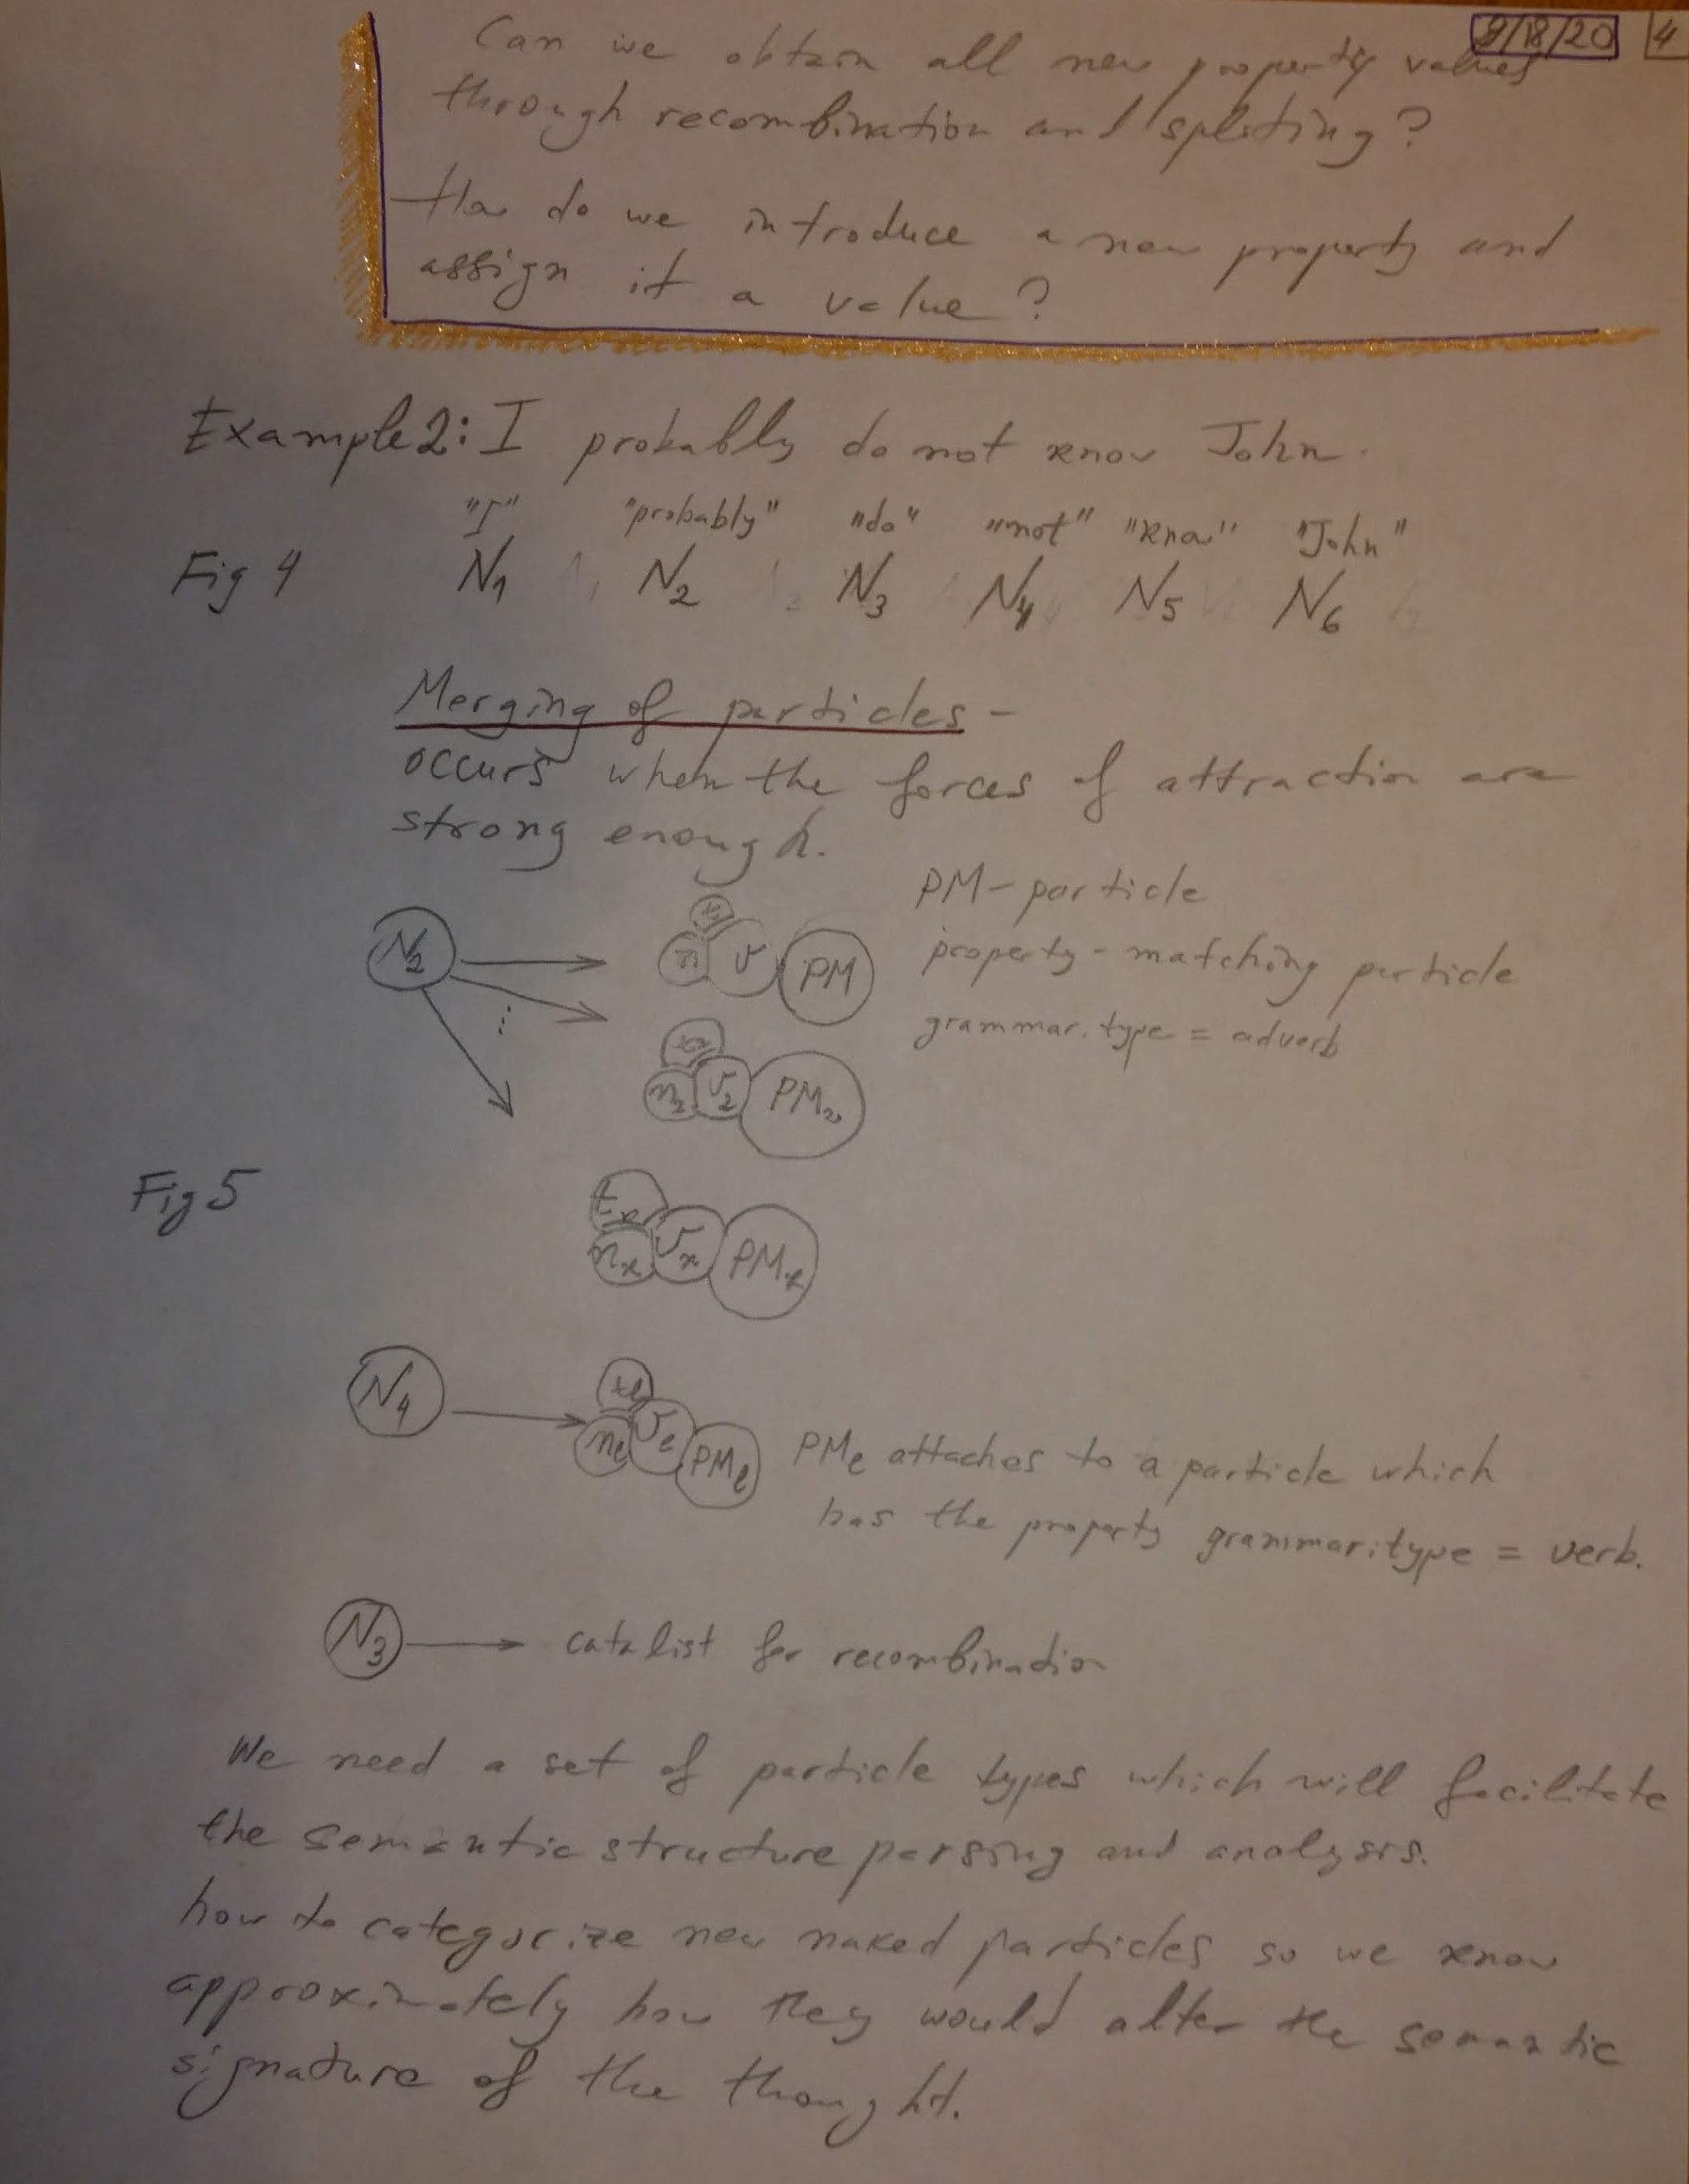 9/18/20 4
Can we obtain all new property values
through recombination and spliting?
How do we introduce a new property and
assign it a value?
Example 2: I probably do not know John.
"I" "probably" "do" "not" "know" "John"
Fig 4 N1 N2 N3 N4 N5 N6
Merging of particles -
occurs when the forces of attraction are
strong enough.
PM - particle
N2 n v PM property - matching particle
grammar.type = adverb
n2 v2 PM2
Fig 5
tx
nx vx PMx
N4 tl
nl vl PMl PMl attaches to a particle which
has the property grammar.type = verb.
N3 catalist for recombination
We need a set of particle types which will facilitate
the semantic structure parsing and analysis.
how to categorize new naked particles so we know
approximately how they would alter the semantic
signature of the thought.